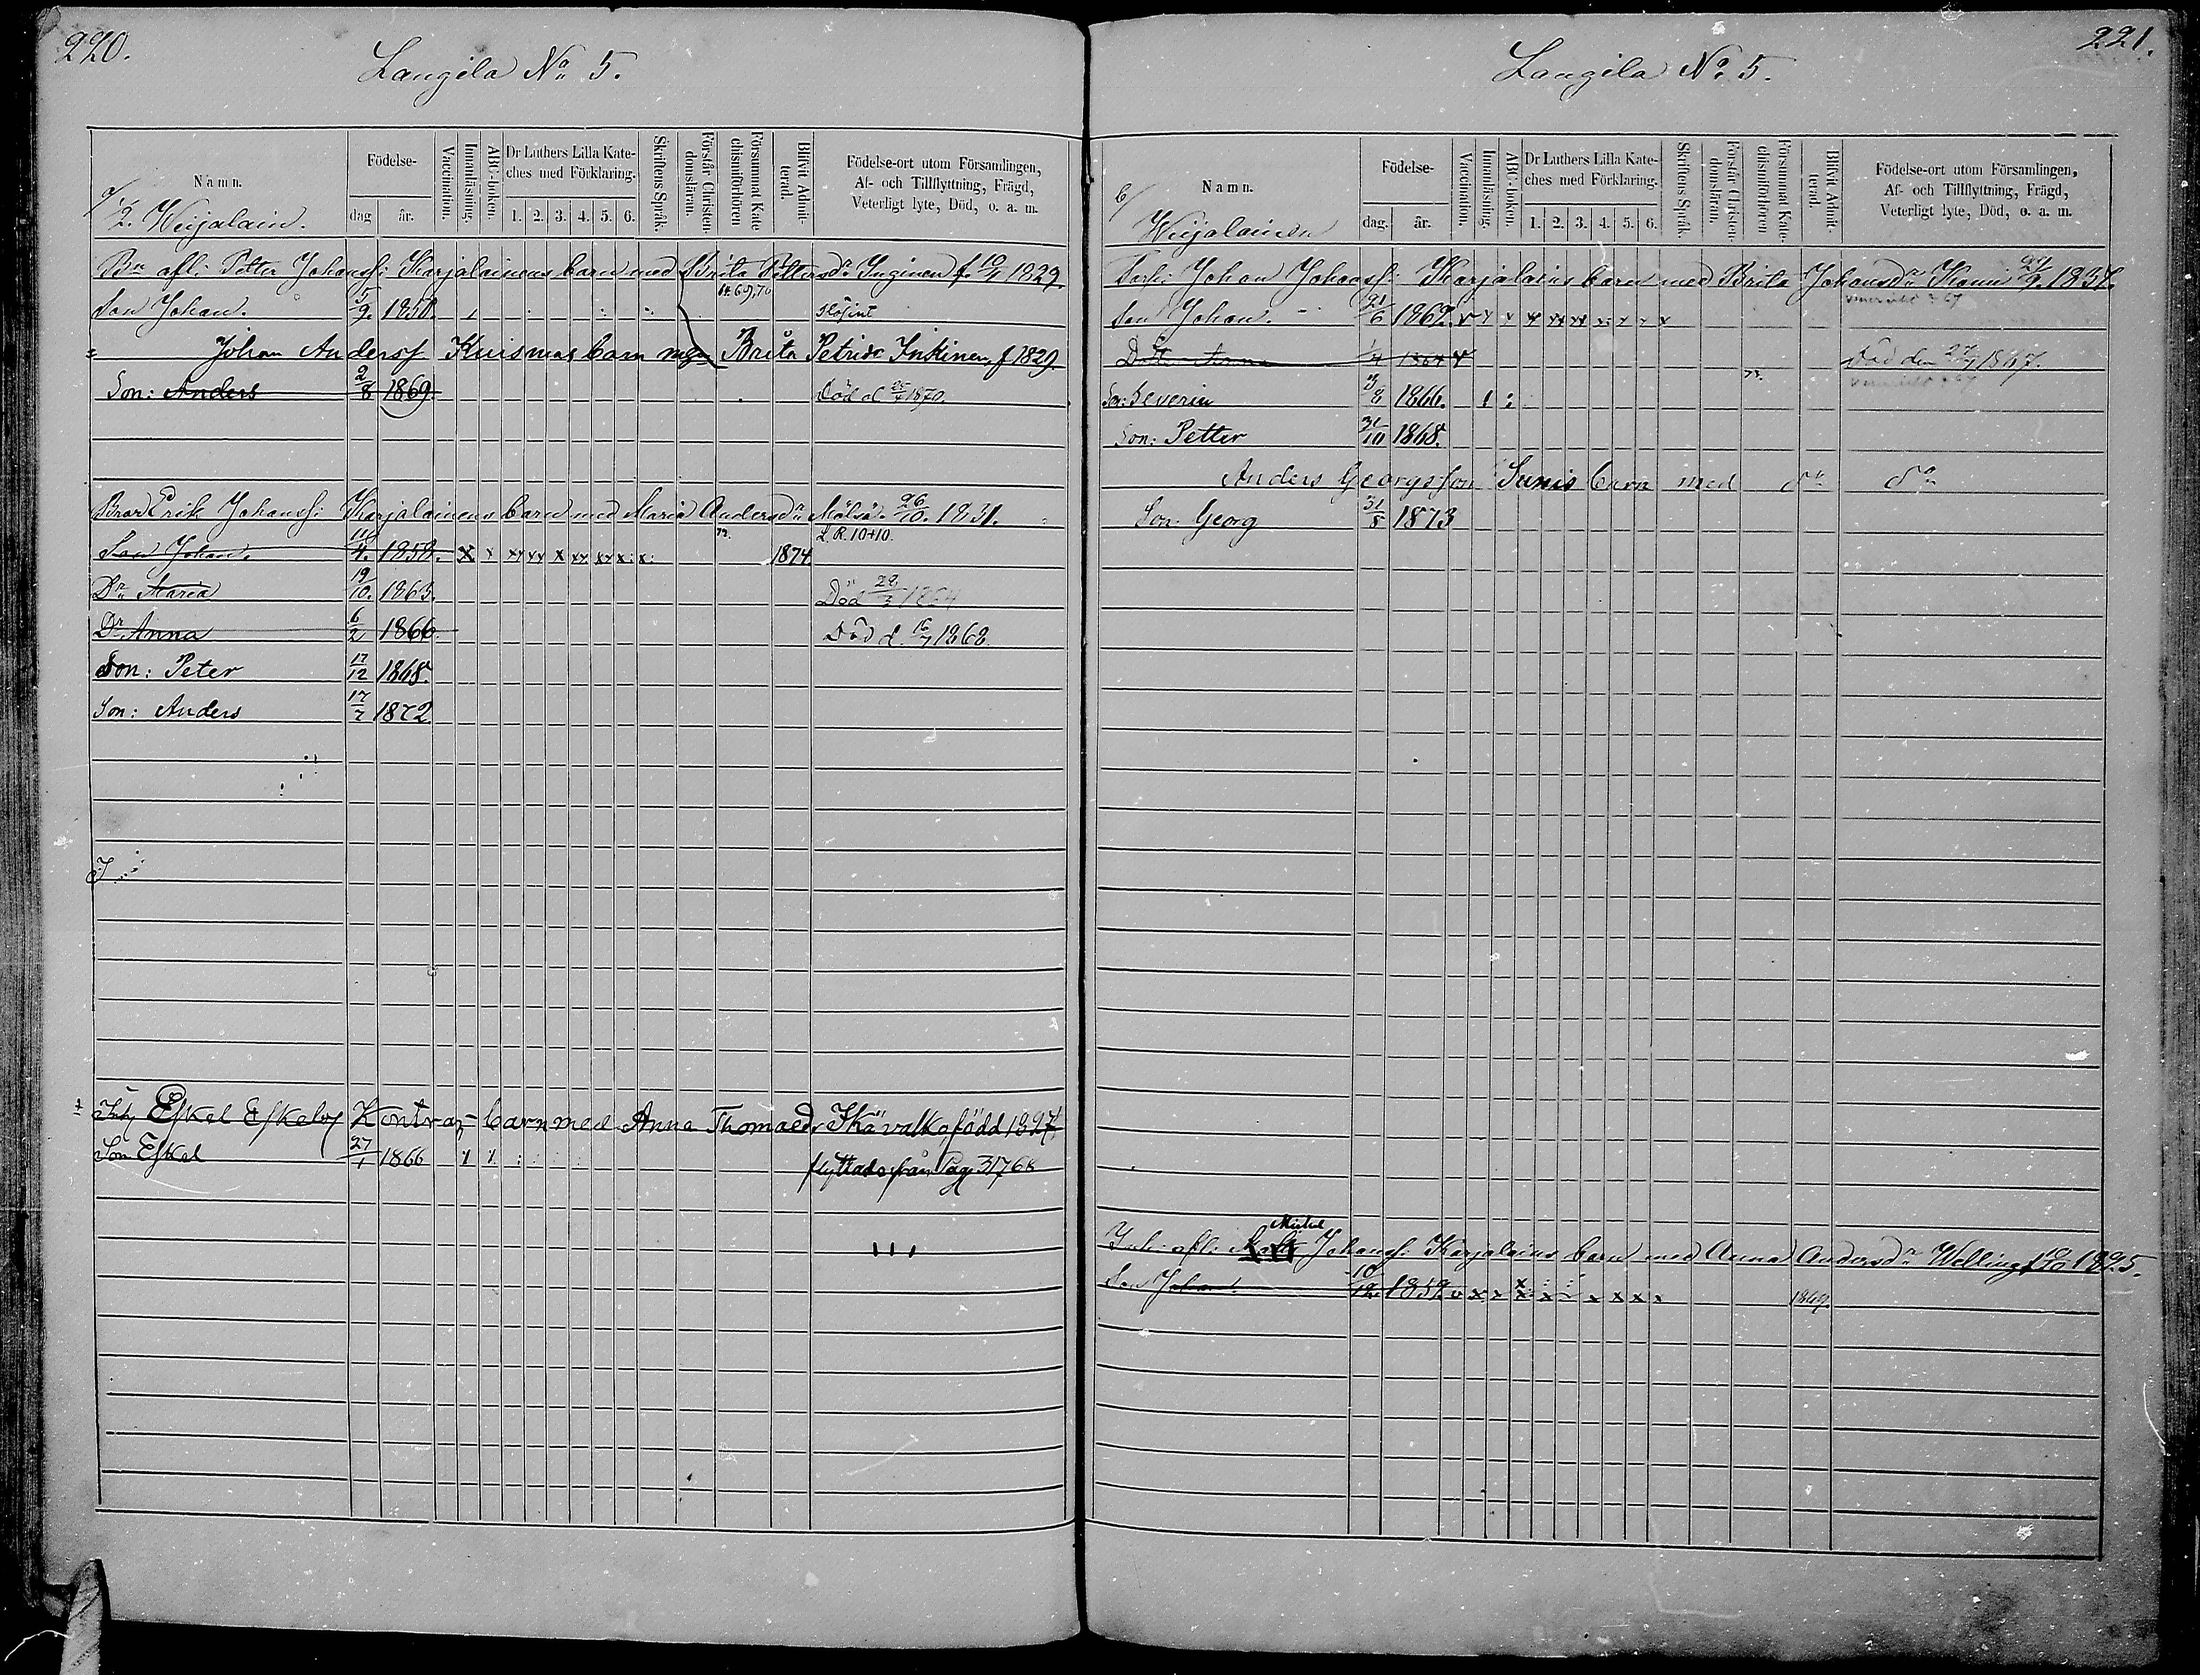 220.
Langila No 5.
Namn.
Födelse-
dag
år.
Vaccination.
Innanläsning.
ABC-boken.
Dr Luthers Lilla Kate-
ches med Förklaring.
1. 2. 3. 4. 5. 6.
Skriftens Språk.
Förstår Christen-
domsläran.
Försummat Kate
chismiförhören
Blifvit Admit-
terad.
Födelse-ort utom Församlingen,
Af- och Tillflyttning, Frägd,
Veterligt lyte, Död, o. a. m.
a/
2. Weijalain.
Bn afl: Petter Johanss: Karjalainens barn med Brita Pettersdr Inginen f. 10/1 1829.
Son Johan. 5/9. 1858. 69,70
Johan Anderss Kuismas barn med Brita Petrisdr Inkinen f 1829.
Son: Anders 2/8 1869 Död d 25/7 1870.
Bror Erik Johanss: Karjalainens barn med Maria Andersdr Mölsä 26/10. 1831.
Son Johan. 4. 1858. x x xx xx x xx xx x x: 73. L.R. 10+10. 1874
Dr Maria 19/10. 1863. Död 22/3 1864
Dr Anna 6/2 1866 Död d. 16/7 1868.
Son: Peter 17/12 1868.
Son: Anders 17/7 1872
Inh Eskel Eskelsf Kontraz barn med Anna Thomaedr Ikävalko född 1827
Son Eskel 27/1 1866 flyttade från Pag 317 68
221.
Langila No 5.
Namn.
Födelse-
dag.
år.
Vaccination.
Innanläsning.
ABC-boken.
Dr Luthers Lilla Kate-
ches med Förklaring.
1. 2. 3. 4. 5. 6.
Skriftens Språk.
Förstår Christen-
domsläran.
Försummat Kate-
chismiförhören
Blifvit Admit-
terad.
Födelse-ort utom Församlingen,
Af- och Tillflyttning, Frägd,
Veterligt lyte, Död, o. a. m.
b/
Weijalainen
Johan Johanss: Karjalains barn med Brita Johansdr 1837.
Son Johan. 21/6 1862.
Dotter Anna 1/4 1864 Död den 27/7 1867.
Son: Severin 3/8 1866. 73.
Son: Petter 31/10 1868.
Anders Georgsson Sunis barn med do do
Son: Georg 31/8 1873
Michel
Inh: afl: Johanss: Karjalains barn med Anna Andersdr Welling f 1825.
Son Johan. 10/12. 1852. 1869.